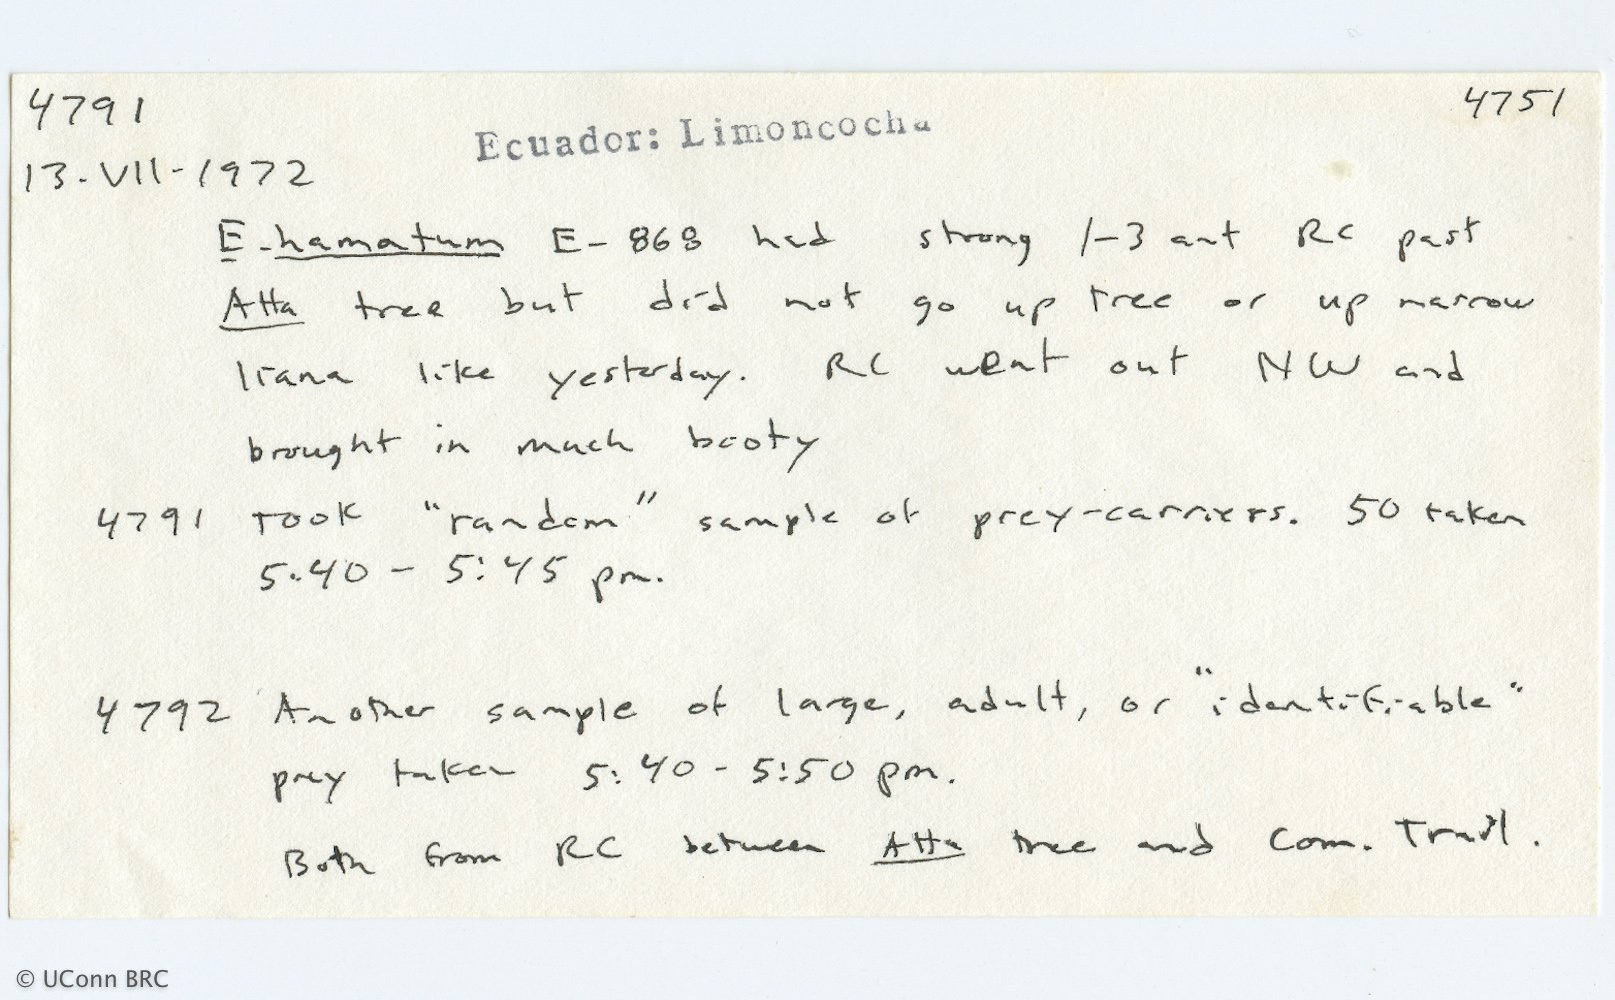 4791
4751
Ecuador: Limoncocha
13-VII-1972
E. hamatum E-868 had strong 1-3 ant RC past
Atta tree but did not go up tree or up narrow
liana like yesterday. RC went out NW and
brought in much booty
4791 Took "random" sample of prey-carriers. 50 taken
5:40 - 5:45 pm.
4792 Another sample of large, adult, or "identifiable"
prey taken 5:40 - 5:50 pm.
Both from RC between Atta tree and Com. Trail.
© UConn BRC